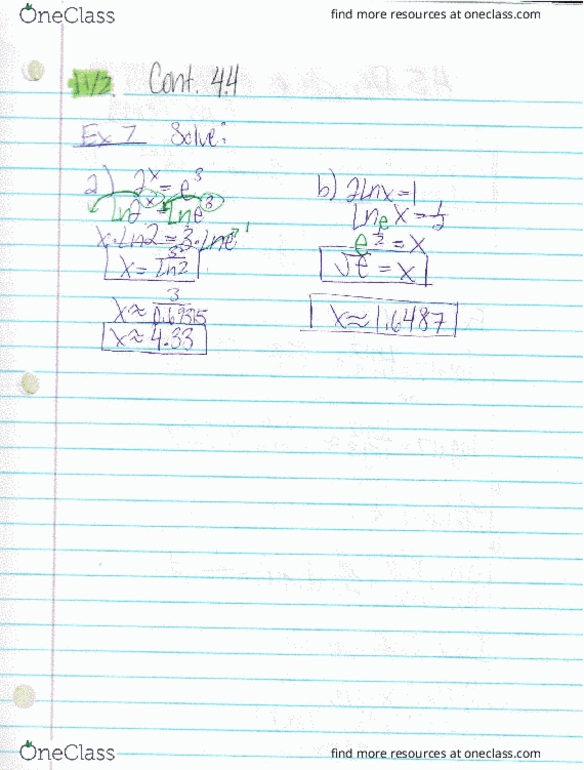 OneClass
find more resources at oneclass.com
11/2 Cont. 4.4
Ex 7 Solve:
a) 2^x = e^3
ln 2^x = ln e^3
x·ln2 = 3·lne
x = 3/ln2
x ≈ 3/0.69315
x ≈ 4.33
b) 2lnx = 1
ln_e x = 1/2
e^1/2 = x
√e = x
x ≈ 1.6487
OneClass
find more resources at oneclass.com